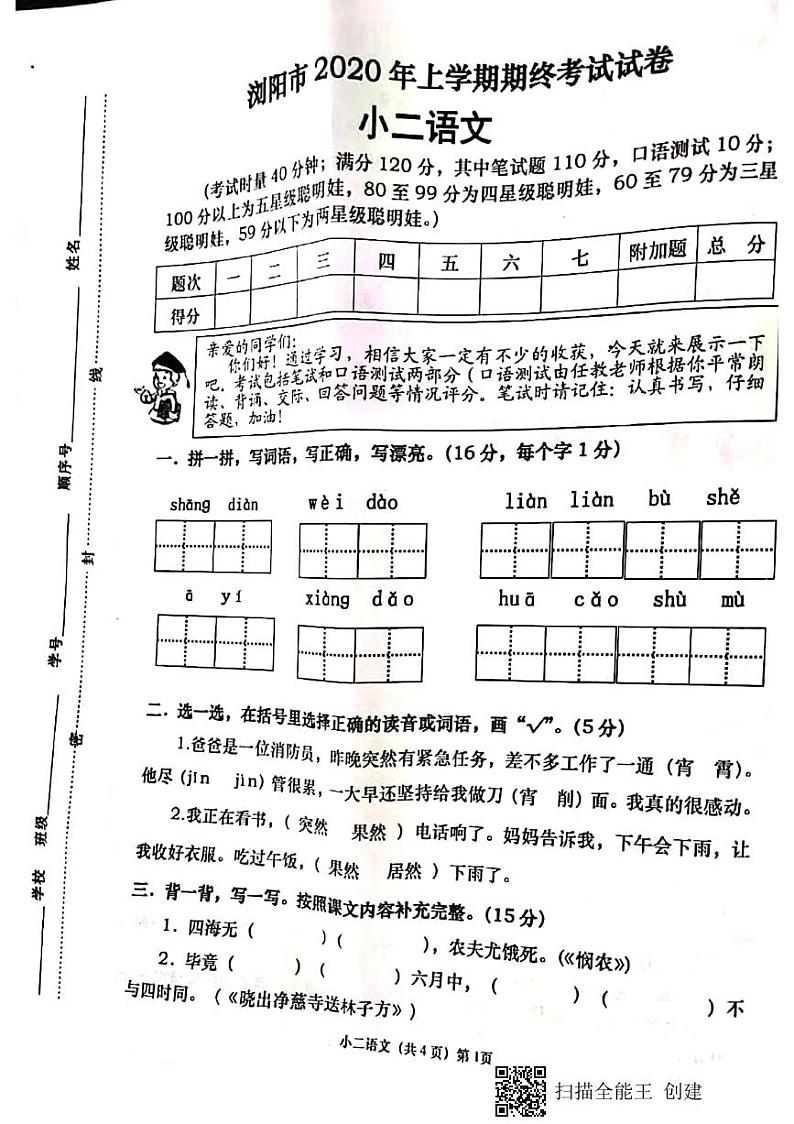 浏阳市2020年上学期期终考试试卷
小二语文
(考试时量40分钟;满分120分,其中笔试题110分,口语测试10分;
100分以上为五星级聪明娃,80至99分为四星级聪明娃,60至79分为三星
级聪明娃,59分以下为两星级聪明娃。)
题次 一 二 三 四 五 六 七 附加题 总 分
得分
亲爱的同学们:
你们好!通过学习,相信大家一定有不少的收获,今天就来展示一下
吧。考试包括笔试和口语测试两部分(口语测试由任教老师根据你平常朗
读、背诵、交际、回答问题等情况评分。笔试时请记住:认真书写,仔细
答题,加油!
一.拼一拼,写词语,写正确,写漂亮。(16分,每个字1分)
shāng diàn wèi dào liàn liàn bù shě
ā yí xiàng dǎo huā cǎo shù mù
二.选一选,在括号里选择正确的读音或词语,画“√”。(5分)
1.爸爸是一位消防员,昨晚突然有紧急任务,差不多工作了一通(宵 霄)。
他尽(jǐn jìn)管很累,一大早还坚持给我做刀(宵 削)面。我真的很感动。
2.我正在看书,(突然 果然)电话响了。妈妈告诉我,下午会下雨,让
我收好衣服。吃过午饭,(果然 居然)下雨了。
三.背一背,写一写。按照课文内容补充完整。(15分)
1.四海无( )( ),农夫尤饿死。(《悯农》)
2.毕竟( )( )六月中,( )( )不
与四时同。(《晓出净慈寺送林子方》)
小二语文(共4页)第1页
学校 班级 学号 顺序号 姓名
密 封 线
扫描全能王 创建